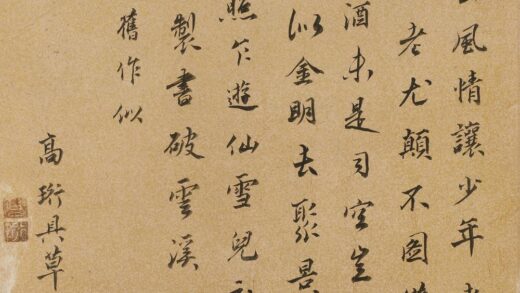 風情讓少年
老尤顛不圖
酒未是司空豈
似金明去聚景
照乍遊仙雪兒
製書破雲溪
舊作似
高珩具草